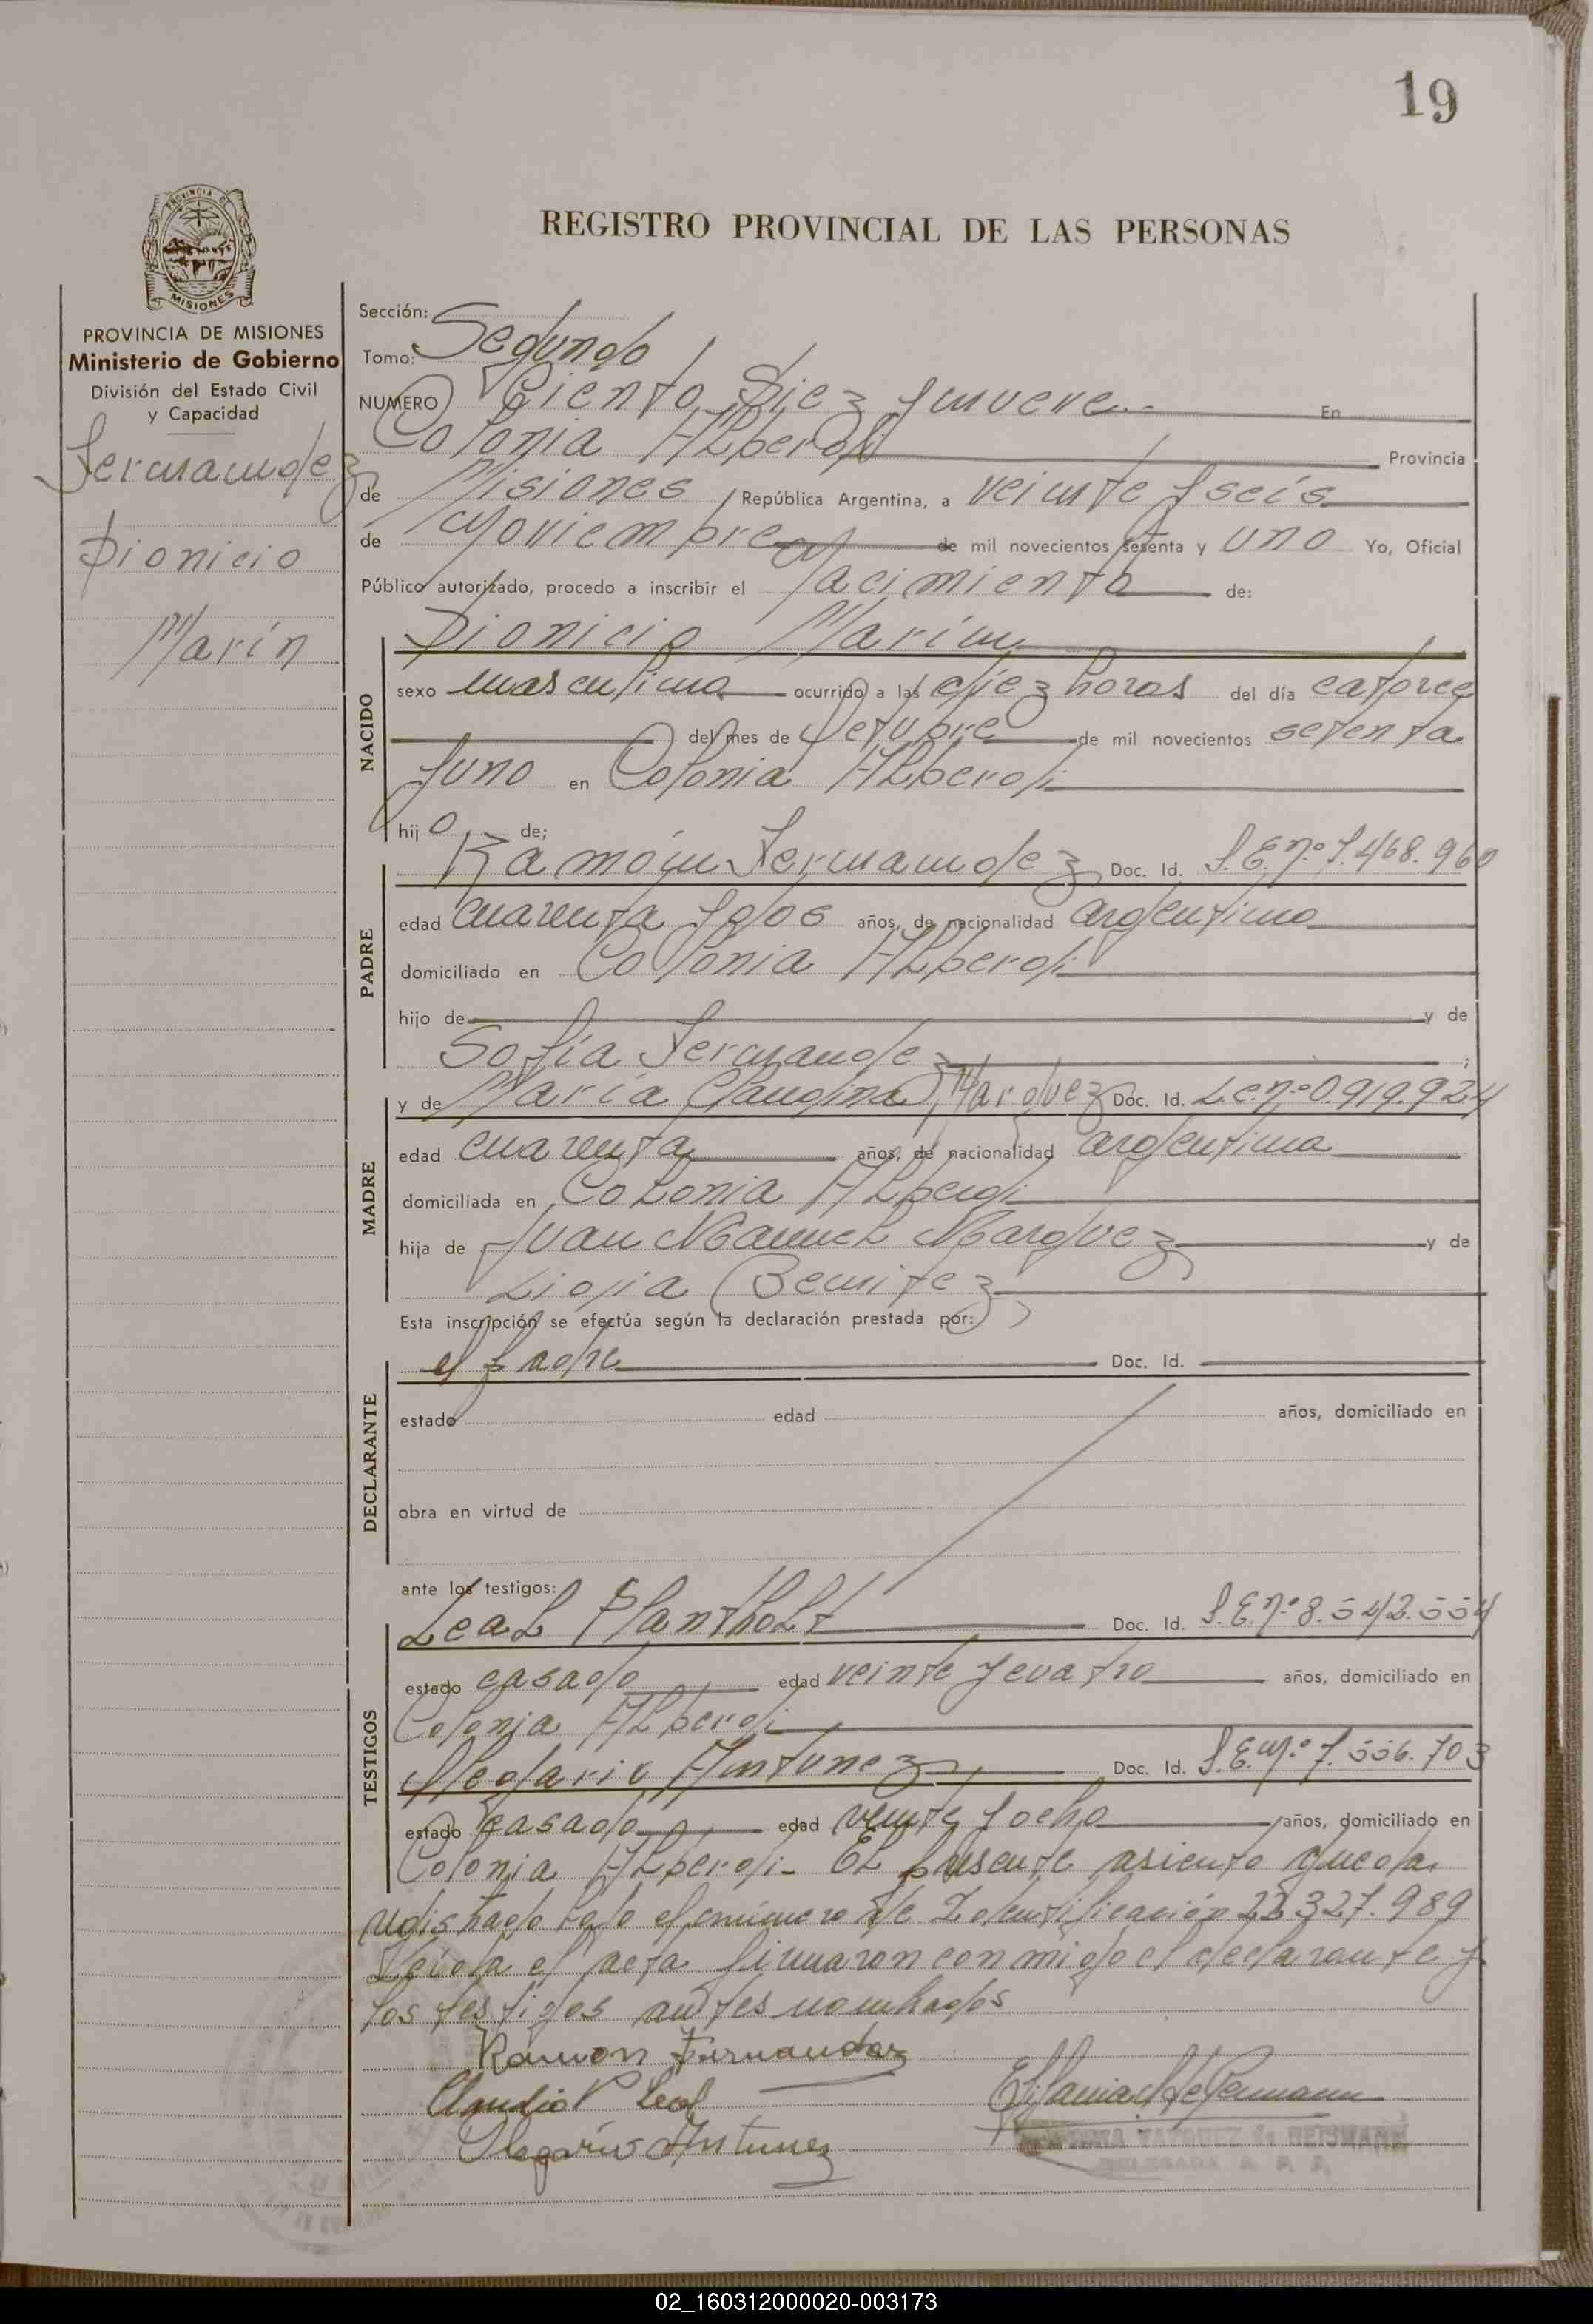 19
REGISTRO PROVINCIAL DE LAS PERSONAS
PROVINCIA DE MISIONES
Ministerio de Gobierno
División del Estado Civil
y Capacidad
Fernandez
Dionicio
Marín
Sección:
Tomo: Segundo
NUMERO Ciento Diez y nueve.- En
Colonia Alberdi Provincia
de Misiones República Argentina, a veinte y seis
de Noviembre de mil novecientos sesenta y uno Yo, Oficial
Público autorizado, procedo a inscribir el Nacimiento de:
NACIDO
Dionicio Marín
sexo masculino ocurrido a las diez horas del día catorce
del mes de Octubre de mil novecientos setenta
y uno en Colonia Alberdi
hijo de;
PADRE
Ramón Fernandez Doc. Id. L.E. nº 7.468.960
edad cuarenta y dos años, de nacionalidad argentino
domiciliado en Colonia Alberdi
hijo de y de
Sofía Fernandez ;
MADRE
y de María Claudina Marquez Doc. Id. L.C. nº 0.919.924
edad cuarenta años, de nacionalidad argentina
domiciliada en Colonia Alberdi
hija de Juan Manuel Marquez y de
Lidia Benitez
Esta inscripción se efectúa según la declaración prestada por:
DECLARANTE
el padre Doc. Id.
estado edad años, domiciliado en
obra en virtud de
ante los testigos:
TESTIGOS
Leal Doc. Id. L.E. nº 8.542.554
estado casado edad veinte y cuatro años, domiciliado en
Colonia Alberdi
Olegario Antunez Doc. Id. L.E. nº 7.556.703
estado casado edad veinte y ocho años, domiciliado en
Colonia Alberdi- El presente asiento queda
registrado bajo el número de Identificación 22.327.989
Leída el acta firmaron conmigo el declarante y
los testigos antes nombrados
Ramon Fernandez
Claudio P Leal
Olegario Antunez
VAZQUEZ de NEUMANN
DELEGADA R. P. P.
02_160312000020-003173